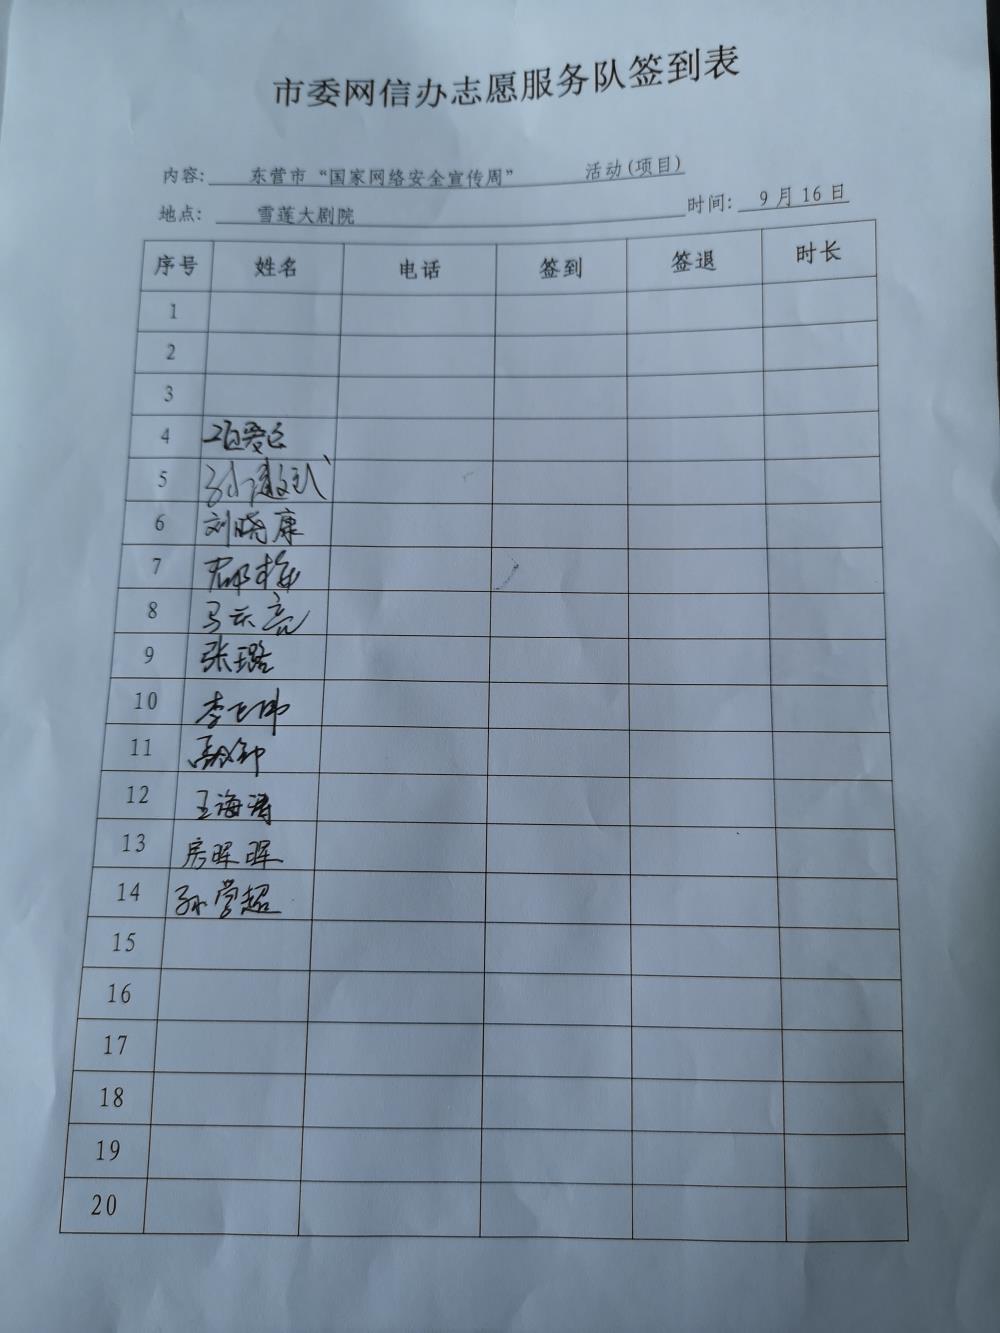 市委网信办志愿服务队签到表
内容: 东营市“国家网络安全宣传周” 活动(项目)
地点: 雪莲大剧院 时间: 9月16日
序号 姓名 电话 签到 签退 时长
1
2
3
4
5
6 刘晓康
7
8 马云亮
9 张璐
10 李飞伟
11
12 王海涛
13 房晖晖
14 孙营超
15
16
17
18
19
20